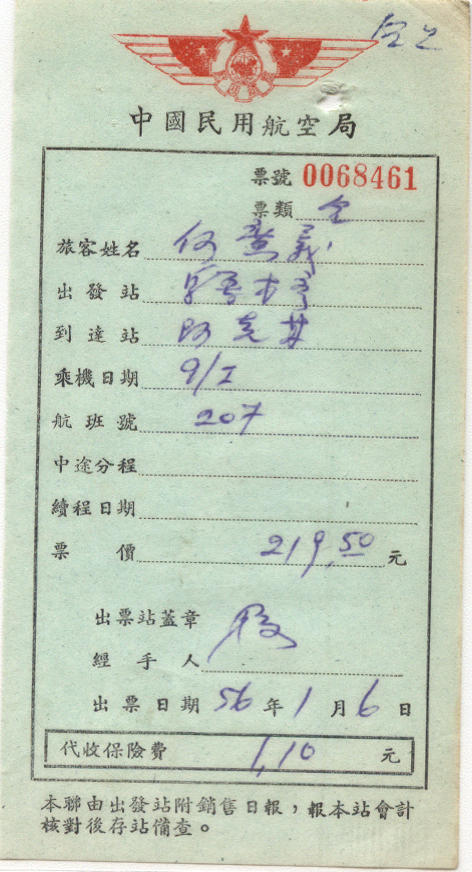 全乙
中國民用航空局
票號 0068461
票類 全
旅客姓名 何
出發站
到達站 阿克蘇
乘機日期 9/I
航班號 207
中途分程
續程日期
票價 219.50 元
出票站蓋章
經手人
出票日期 56 年 1 月 6 日
代收保險費 1.10 元
本聯由出發站附銷售日報，報本站會計
核對後存站備查。